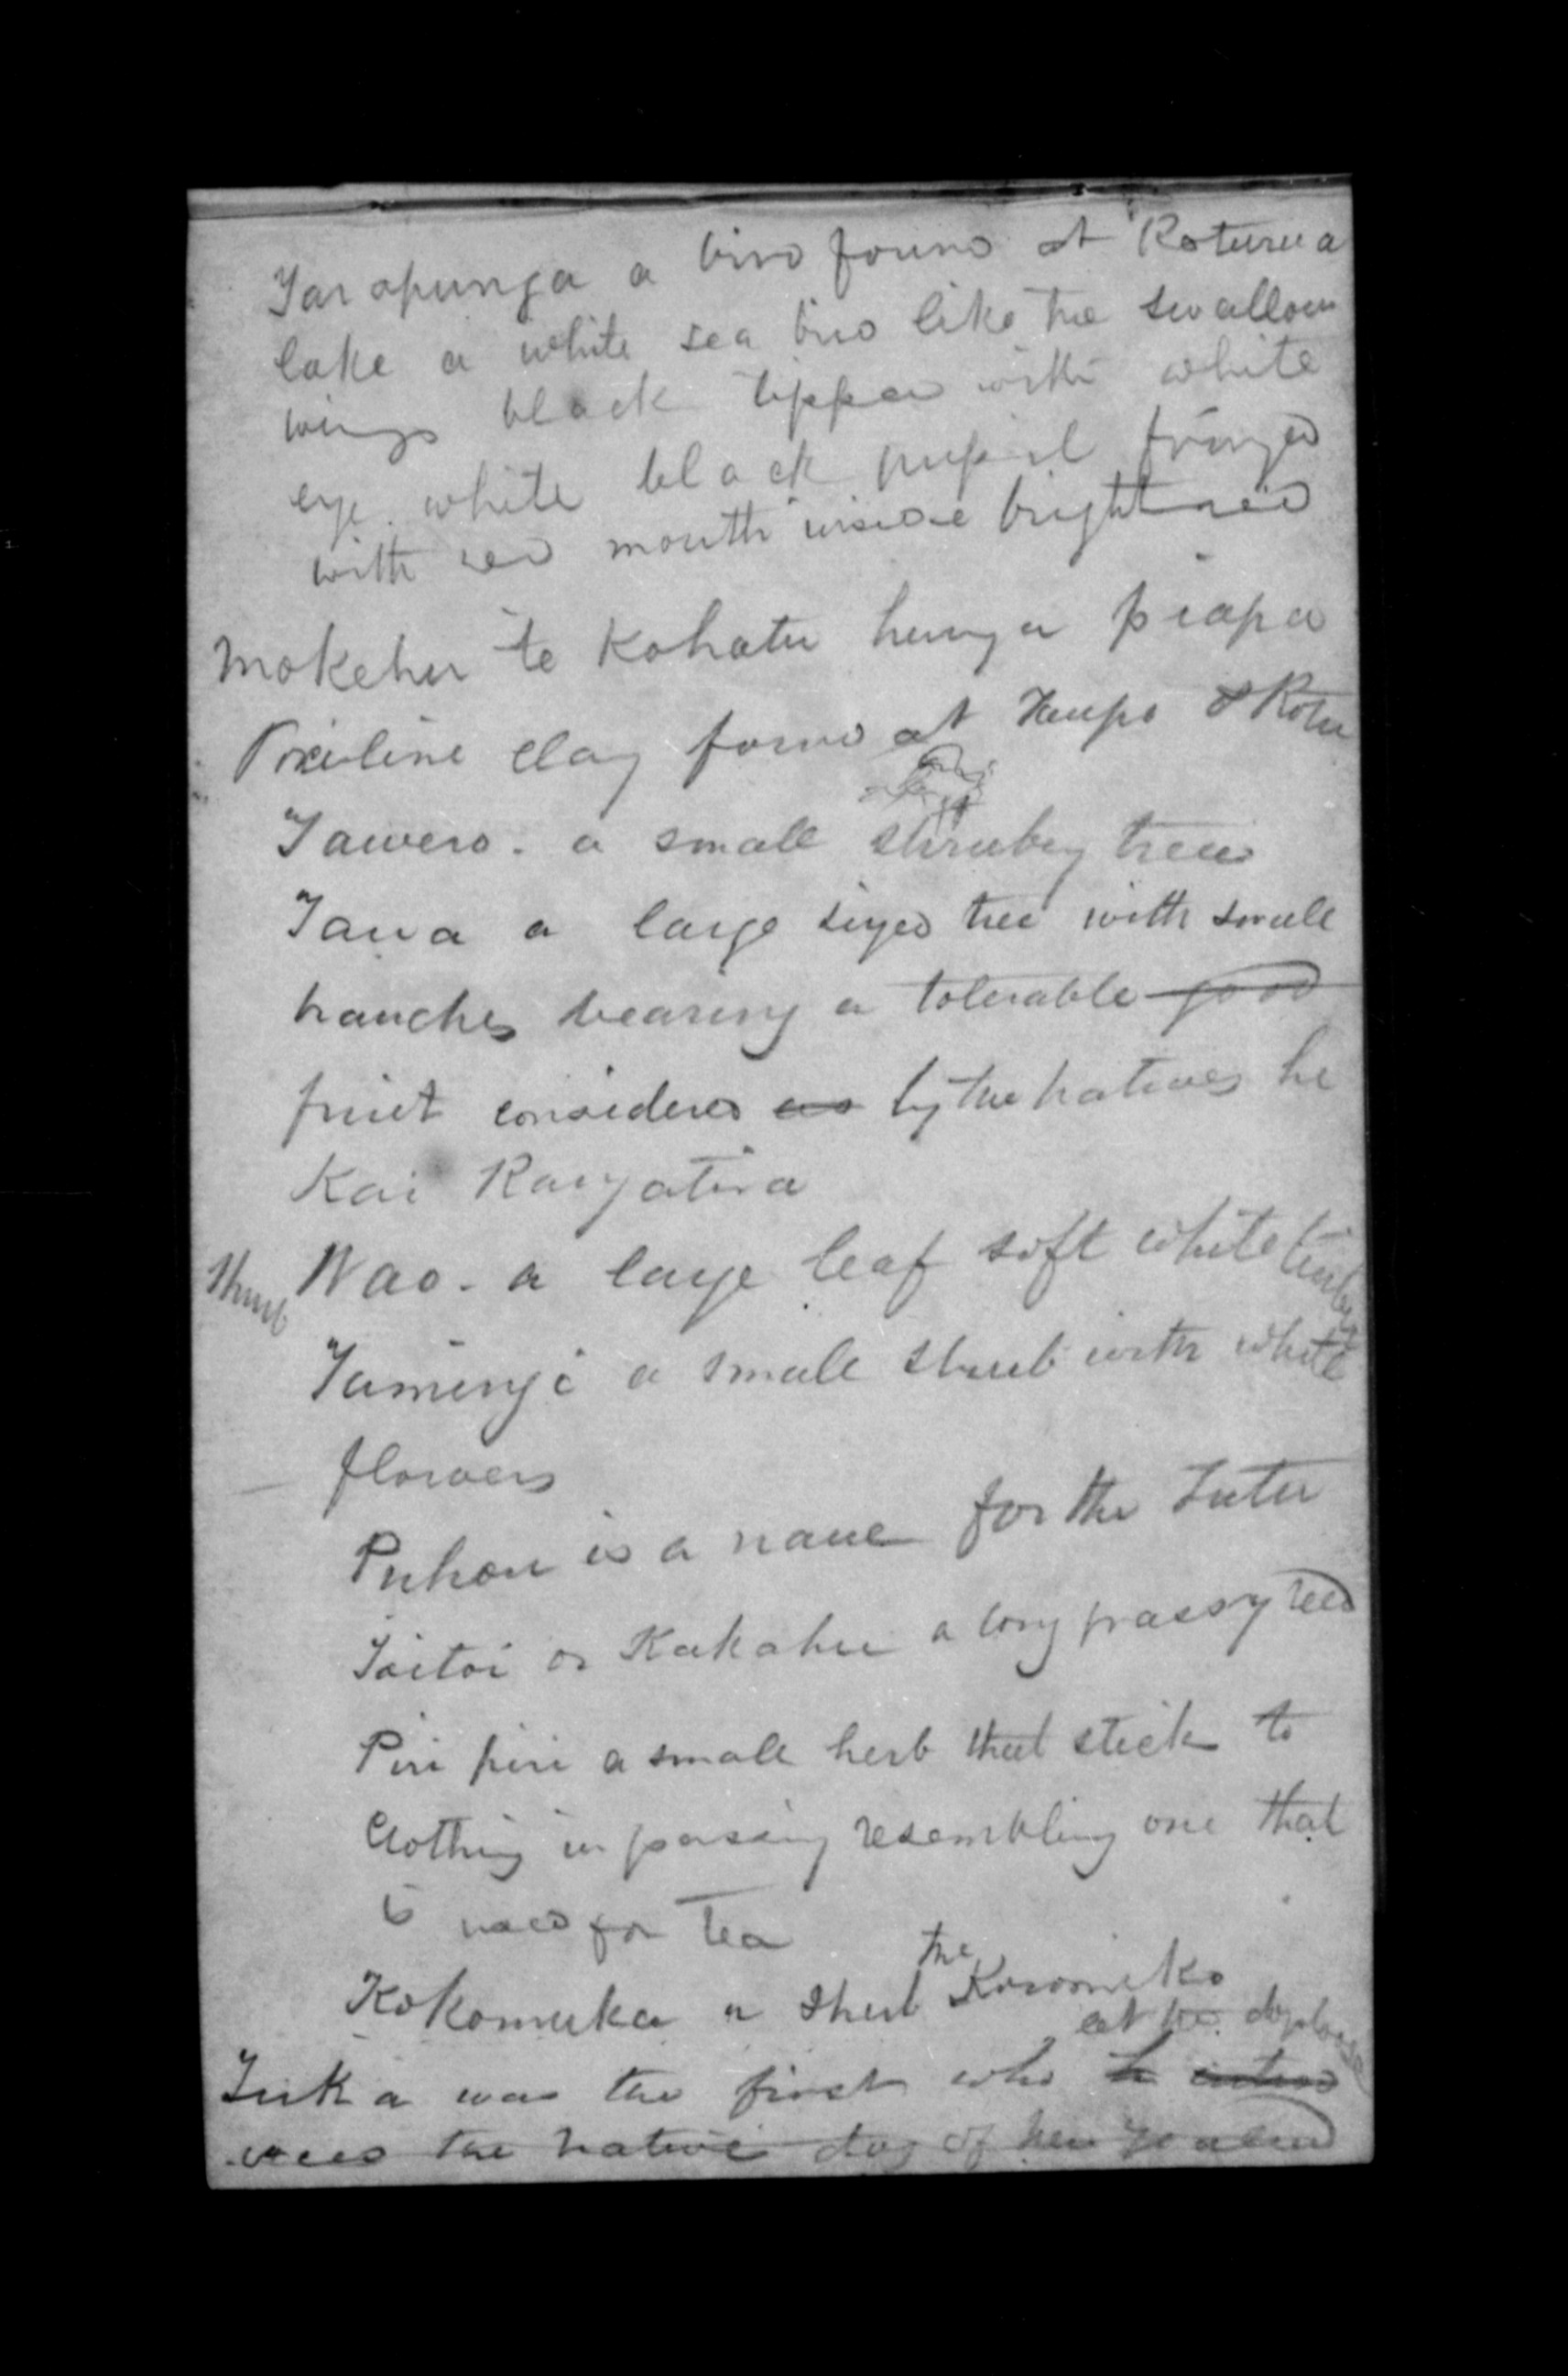 Tarapunga a bird found at Roturua
lake a white sea bird like the swallow
wings black tipped with white
eye white black pupil fringed
with red mouth inside bright red
Mokehu te Kohatu hunga piapa
Porceline clay found at Taupo & Rotu
Tawero. a small shrubey tree
Tawa a large sized tree with small
branches bearing a tolerable good
fruit considered as by the natives he
Kai Rangatira
Shrub Wao. a large leaf soft white timber
Tumingi a small shrub with white
flowers
Puhou is a name for the Tutu
Toitoi or Kakahu a long grassy reed
Piri piri a small herb that stick to
Clothing in passing resembling one that
is used for Tea
Kokomuka a shrub the Koromiko
eat the dog
Tuka was the first who
was the native dog of New Zealand